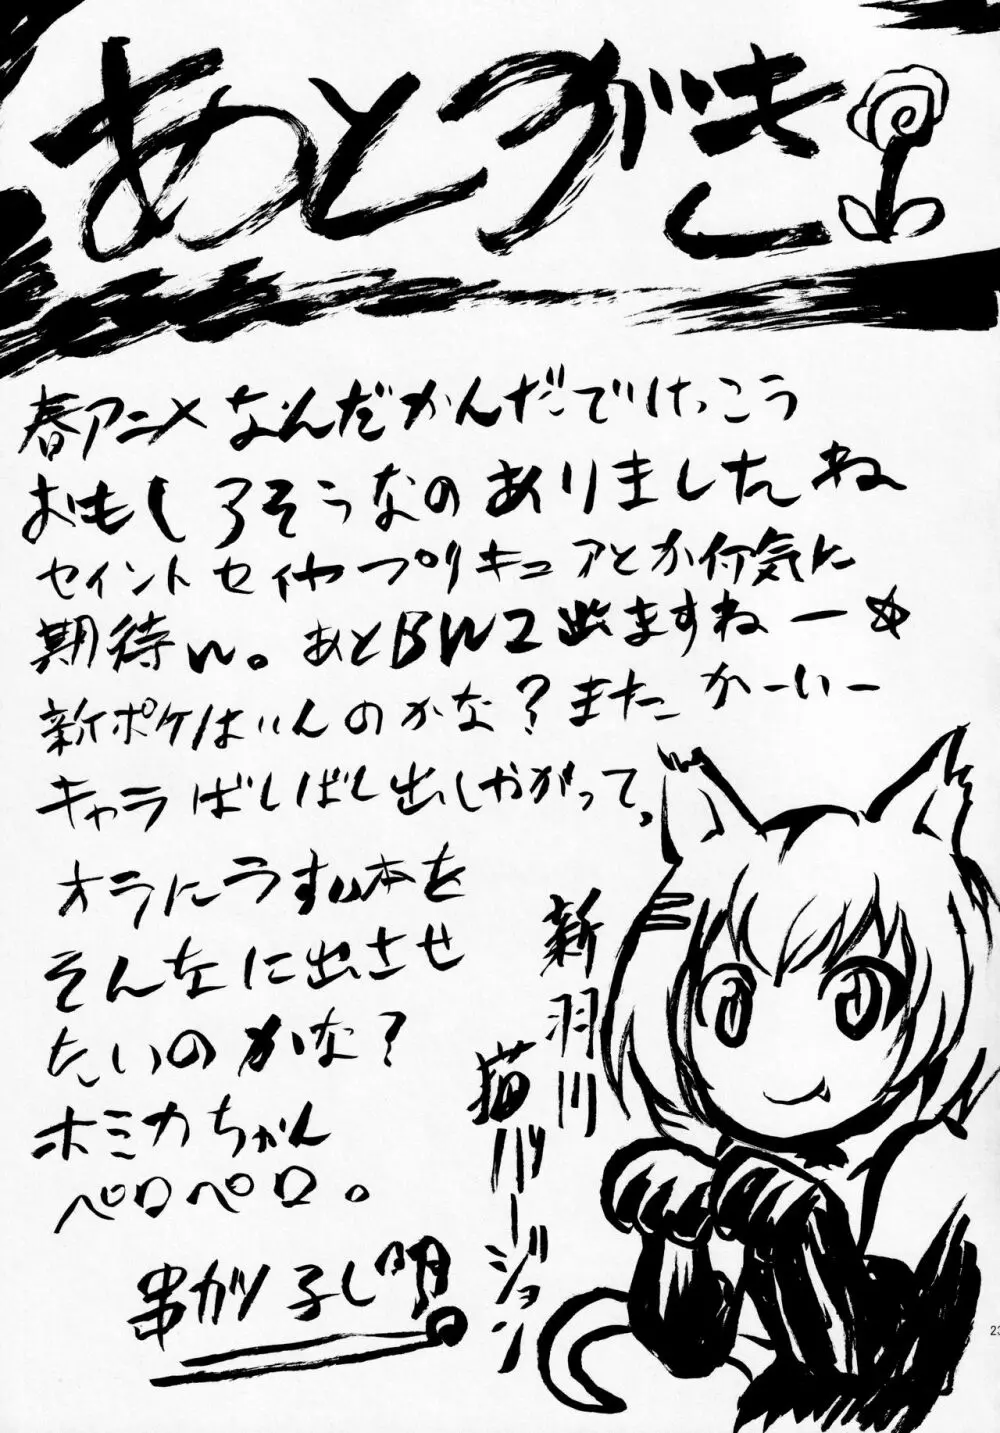 あとがき
春アニメなんだかんだでけっこう
おもしろそうなのありましたね
セイントセイヤプリキュアとか何気に
期待w。あとBW2出ますねー☆
新ポケはいんのかな?またかーいー
キャラばしばし出しやがって、
オラにうすい本を
そんなに出させ
たいのかな?
ホミカちゃん
ペロペロ。
串カツ子し明。
新羽川
猫バージョン
23